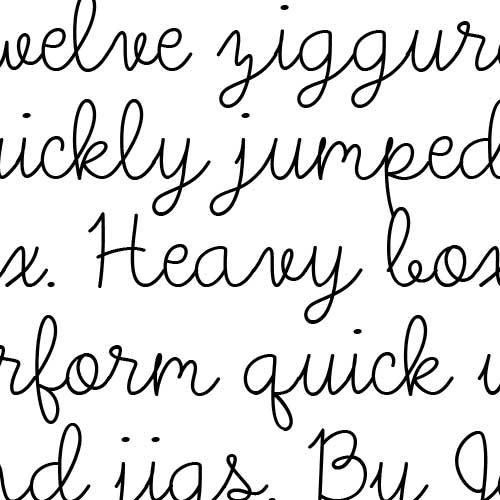 welve ziggur
uickly jumped
x. Heavy box
rform quick
nd jigs. By J